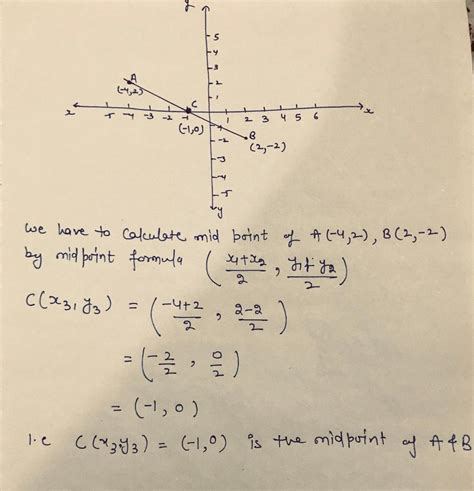 y
5
4
3
2
1
A
(-4,2)
C
x -5 -4 -3 -2 -1 1 2 3 4 5 6 x
(-1,0)
B
(2,-2)
-1
-2
-3
-4
-5
y
we have to calculate mid point of A(-4,2), B(2,-2)
by midpoint formula ( x1+x2/2 , y1+y2/2 )
C(x3, y3) = ( -4+2/2 , 2-2/2 )
= ( -2/2 , 0/2 )
= (-1, 0)
i.e C(x3,y3) = (-1,0) is the midpoint of A & B